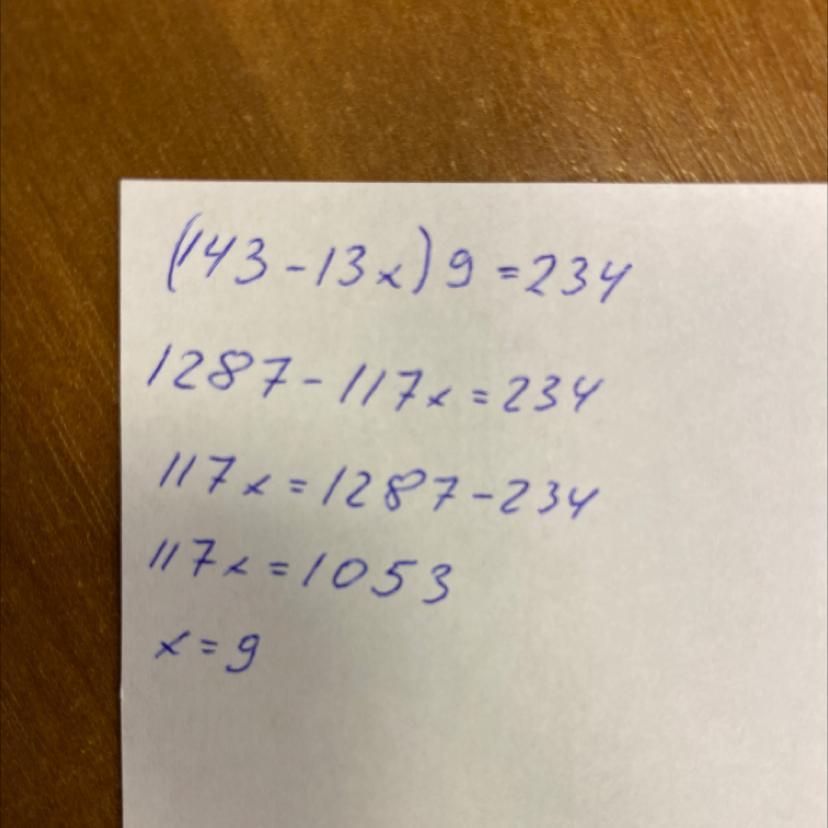 (143-13x)9=234
1287-117x=234
117x=1287-234
117x=1053
x=9